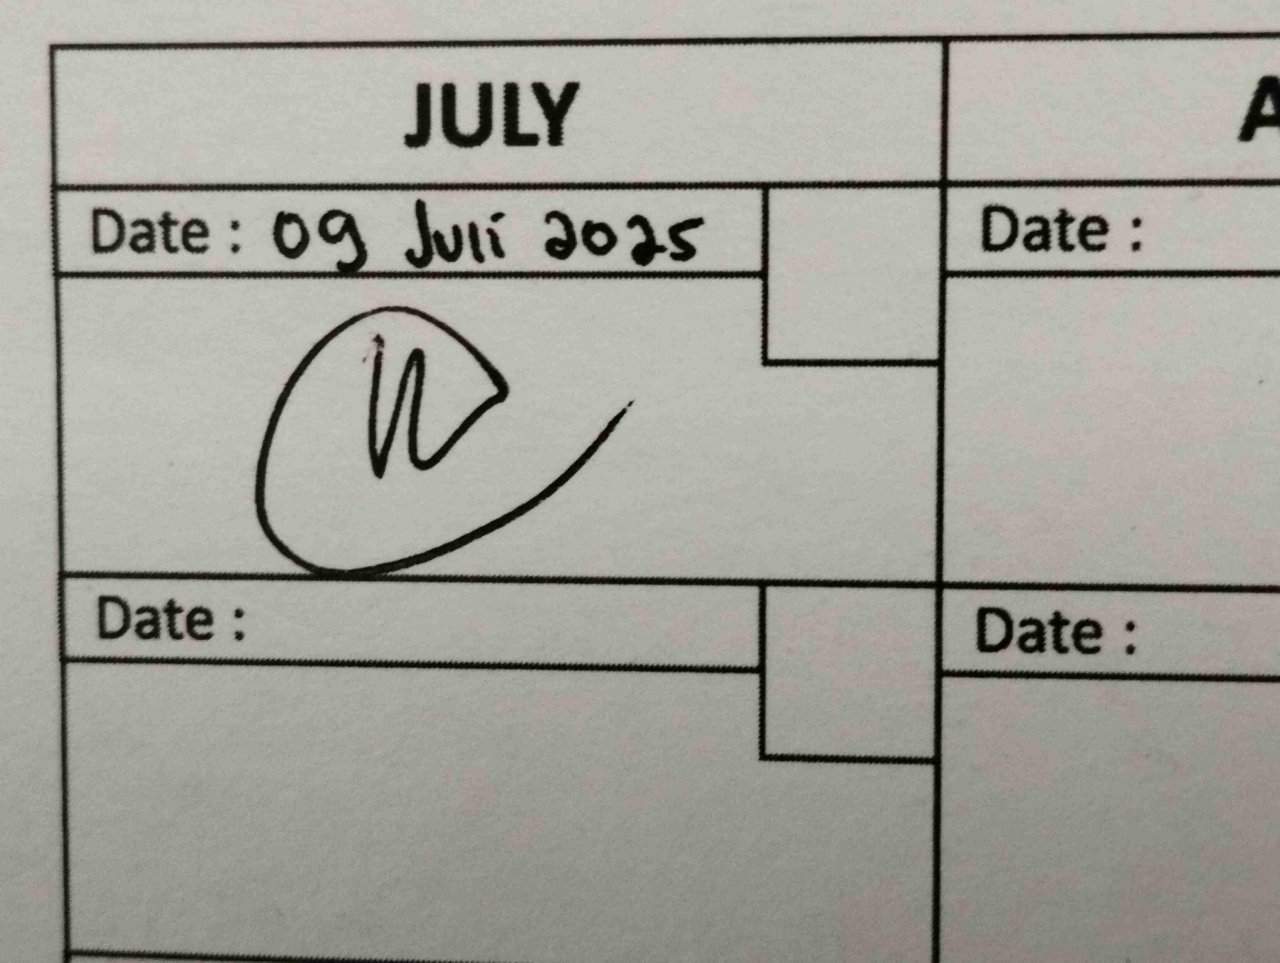 JULY
Date : 09 Juli 2025
Date :
Date :
Date :